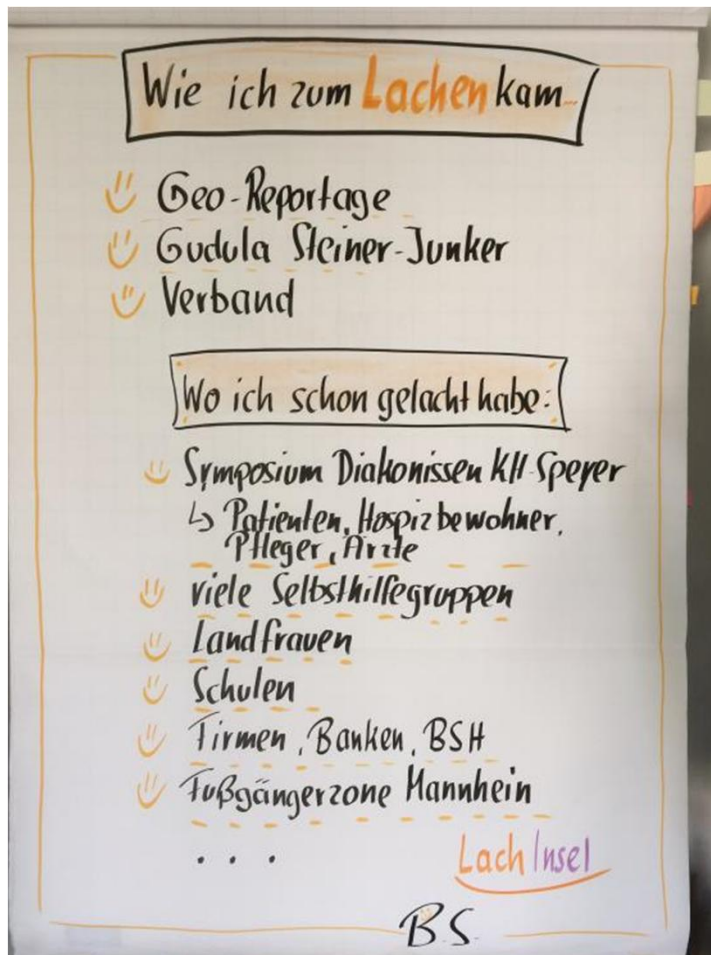 Wie ich zum Lachen kam...
Geo-Reportage
Gudula Steiner-Junker
Verband
Wo ich schon gelacht habe:
Symposium Diakonissen KH-Speyer
↳ Patienten, Hospizbewohner,
Pfleger, Ärzte
viele Selbsthilfegruppen
Landfrauen
Schulen
Firmen, Banken, BSH
Fußgängerzone Mannhein
...
LachInsel
B.S.